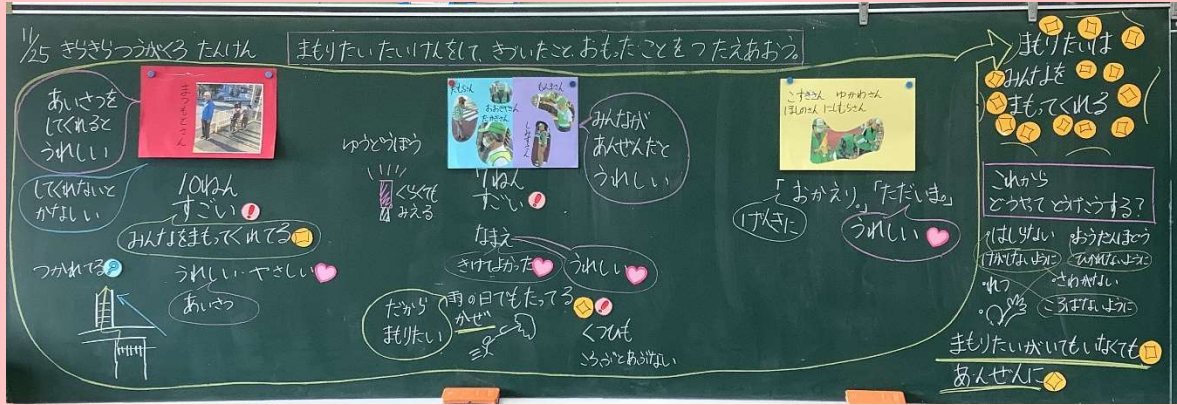 11/25 きらきらつうがくろ たんけん
まもりたいたいけんをして、きづいたこと、おもったことをつたえあおう。
あいさつを
してくれると
うれしい
してくれないと
かなしい
まつもとさん
10ねん
すごい!
みんなをまもってくれてる
つかれてる
うれしい・やさしい
あいさつ
ゆうどうぼう
くらくても
みえる
おおきやさん
たかぎさん
しみずさん
みんなが
あんぜんだと
うれしい
ねん
すごい!
なまえ
きけてよかった
うれしい
だから
まもりたい
雨の日でもたってる!
かぜ
くつひも
ころぶとあぶない
こすぎさん ゆかわさん
ほしのさん にしむらさん
「おかえり。」「ただいま。」
げんきに
うれしい
まもりたいは
みんなを
まもってくれる
これから
どうやってとうげこうする?
・はしらない
けがしないように
・おうだんほどう
ひかれないように
・れつ
・さわがない
ころばないように
まもりたいがいてもいなくても
あんぜんに